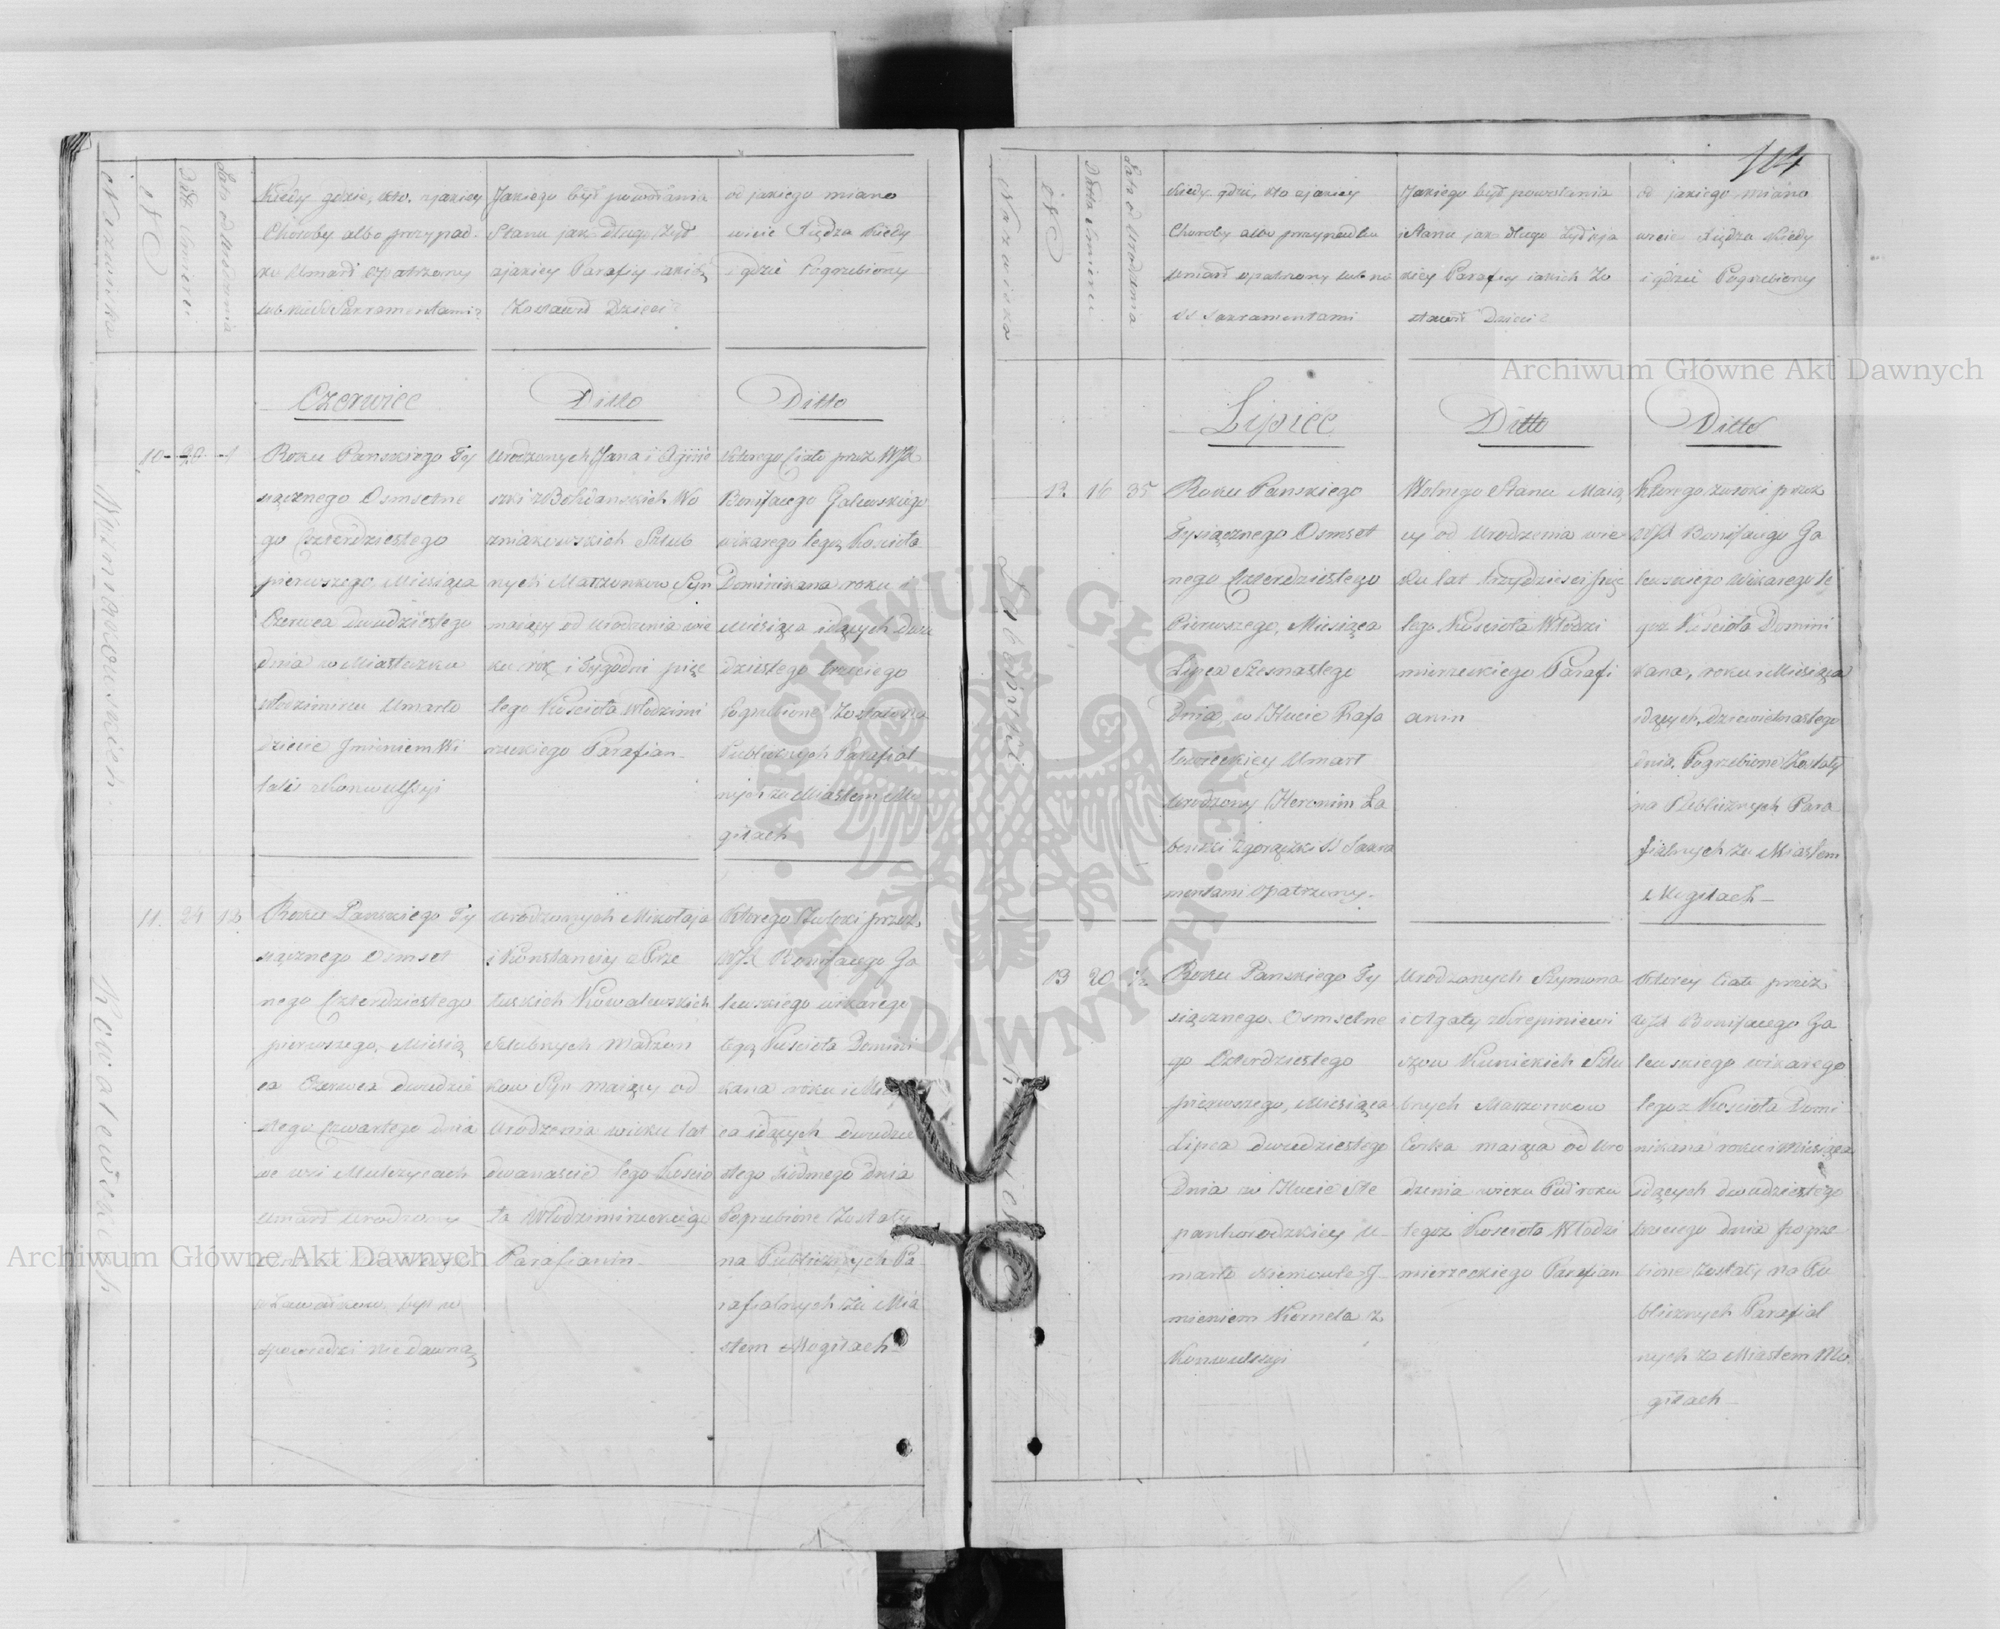 Nazwisko
N
Data Śmierci
Lata od Urodzenia
Kiedy gdzie, kto, z jakiey
Choroby albo przypad-
ku Umarł opatrzony
lub nie SS Sakramentami?
Jakiego był powołania
Stanu jak długo żył
z jakiey Parafiy i akich
Zostawił Dzieci?
od jakiego miano
wicie Xiędza Kiedy
i gdzie Pogrzebiony
Czerwiec
Ditto
Ditto
Woźniakowskich
10
20
1
Roku Panskiego Ty
siącznego Osmsetne
go Czterdziestego
pierwszego, Miesiąca
Czerwca dwudziestego
dnia w Miasteczku
Włodzimircu Umarło
Dziecie Jmieniem Wi
talis z Konwulsyi
Urodzonych Jana i
z Bohdanskich Wo
zniakowskich Szlub
nych Małżonkow Syn
maiący od Urodzenia wie
ku rok i Tygodni pięc
tego Kościoła Włodzimi
rzeckiego Parafian
Którego Ciało przez WJX
Bonifacego Galewskiego
wikarego tegoż Kościoła
Dominikana roku i
Miesiąca idących dwu
dziestego trzeciego
Pogrzebione Zostało na
Publicznych Parafial
nych za Miastem Mo
giłach
Kowalewskich
11.
24
12
Roku Panskiego Ty
siącznego Osmset
nego Czterdziestego
pierwszego, Miesią
ca Czerwca dwudzie
stego Czwartego dnia
we wsi Mulczycach
Umarł Urodzony
spowiedzi nie dawną
Urodzonych Mikołaja
i Konstancyi z Prze
łuskich Kowalewskich
Szlubnych Małżon
kow Syn maiący od
Urodzenia wieku lat
dwanascie tego Koscio
ła Włodzimirzeckiego
Parafianin
Którego Zwłoki przez
WJX Bonifacego Ga
lewskiego wikarego
tegoż Kościoła Domini
kana roku i Miesią
ca idących dwudzie
stego siódmego Dnia
Pogrzebione Zostały
na Publicznych Pa
rafialnych za Mia
stem Mogiłach
104
Nazwisko
N
Data Śmierci
Lata od Urodzenia
Kiedy, gdzie, kto z jakiey
Choroby albo przypadku
Umarł opatrzony lub nie
SS Sakramentami
Jakiego był powołania
i Stanu jak długo żył z ja
kiey Parafiy i akich Zo
stawił Dzieci?
od jakiego miano
wicie Xiędza Kiedy
i gdzie Pogrzebiony
Lipiec
Ditto
Ditto
12
16
35
Roku Panskiego
Tysiącznego Osmset
nego Czterdziestego
Pierwszego, Miesiąca
Lipca Szesnastego
Dnia, w Hucie Rafa
łowieckiey Umarł
Urodzony Heronim Ła
bendzki z gorączki SS Sakra
mentami opatrzony.
Wolnego Stanu Maią
cy od Urodzenia wie
ku lat trzydziesci pięć
tego Kościoła Włodzi
mierzeckiego Parafi
anin
Którego Zwłoki przez
WJX Bonifacego Ga
lewskiego wikarego te
goż Kościoła Domini
kana, roku i Miesiąca
idących, dziewietnastego
dnia Pogrzebione Zostały
na Publicznych Para
fialnych za Miastem
Mogiłach
13
20
1/2
Roku Panskiego Ty
siącznego Osmsetne
go Czterdziestego
pierwszego, Miesiąca
Lipca dwudziestego
Dnia w Hucie Ste
panhorodzkiey U-
marło Niemowle J-
mieniem Kornela z
Konwulsyi
Urodzonych Szymona
i Agaty z Korepiniewi
czow Kunickich Szlu
bnych Małżonkow
Corka maiąca od Uro
dzenia wieku Puł roku
tegoż Kościoła Włodzi
mierzeckiego Parafian
Którey Ciało przez
WJX Bonifacego Ga
lewskiego wikarego
tegoż Kościoła Domi
nikana roku i Miesiąca
idących dwudziestego
trzeciego dnia pogrze-
bione zostały na Pu
blicznych Parafial
nych za Miastem Mo
giłach
Archiwum Główne Akt Dawnych
Archiwum Główne Akt Dawnych
ARCHIWUM GŁÓWNE AKT DAWNYCH